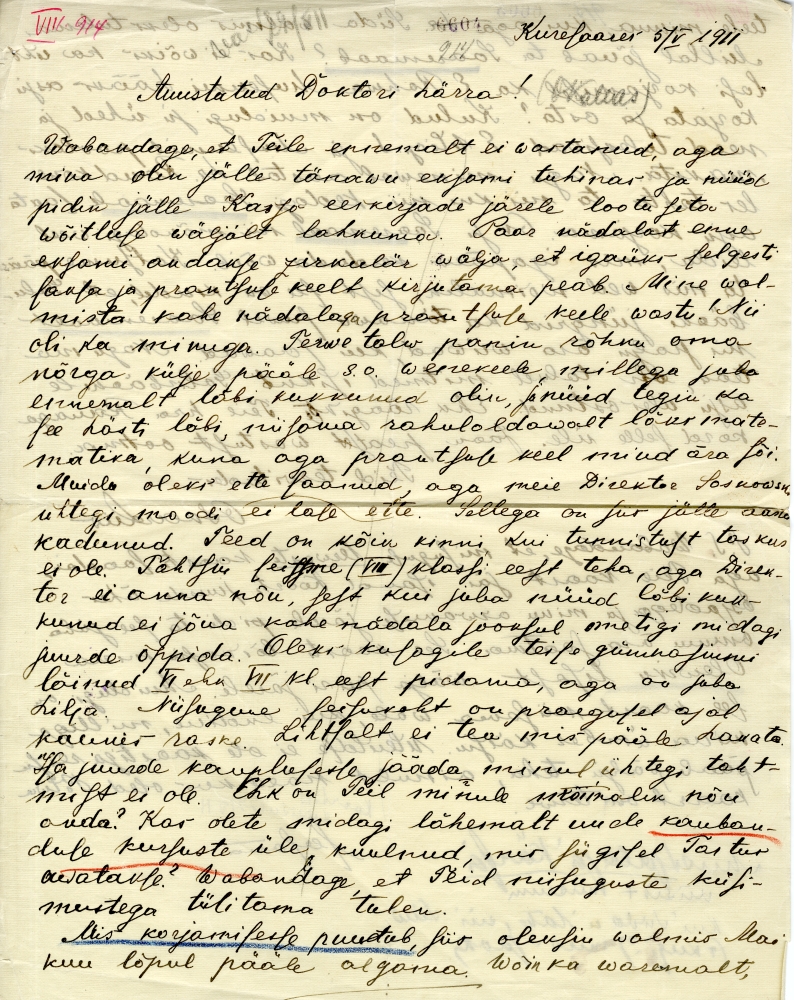 VIII 914
Kuresaares 5/V 1911
914
Auustatud Doktori härra!
Wabandage, et Teile ennemalt ei wastanud, aga
mina olin jälle tänawu eksami tuhinas ja nüüd
pidin jälle Kasso eeskirjade järele lootuseta
wõitluse wäljalt lahkuma. Paar nädalat enne
eksami andakse zirkulär wälja, et igaüks selgesti
saksa ja prantsuse keelt kirjutama peab. Mine wal-
mista kahe nädalaga prantsuse keele wastu! Nii
oli ka minuga. Terwe talw panin rõhku oma
nõrga külje pääle s.o. wenekeele millega juba
ennemalt läbi kukkunud olin, nüüd tegin ka
see hästi läbi, niisama rahuloldawalt läks mate-
matika, kuna aga prantsuse keel mind ära sõi.
Muidu oleks ette saanud, aga meie Direktor
ühtegi moodi ei lase ette. Sellega on siis jälle aasta
kadunud. Teed on kõik kinni kui tunnistust taskus
ei ole. Tahtsin seitsme (VIII) klassi eest teha, aga Direk-
tor ei anna nõu, sest kui juba nüüd läbi kuk-
kunud ei jõua kahe nädala jooksul ometigi midagi
juurde õppida. Oleks kusagile teise gümnasiumi
läinud VI ehk VII kl. eest pidama, aga on juba
hilja. Niisugune seisukoht on praegusel ajal
kaunis raske. Lihtsalt ei tea mis pääle hakata.
Isa juurde kauplusesse jääda, minul ühtegi taht-
mist ei ole. Ehk on Teil minule mõnda nõu
anda? Kas olete midagi lähemalt uude kauban-
duse kursuste üle kuulnud, mis sügisel Tartus
awatakse? Wabandage, et Teid niisuguste küsi-
mustega tülitama tulen.
Mis korjamisesse puutub, siis oleksin walmis Mai
kuu lõpul pääle algama. Wõin ka waremalt,